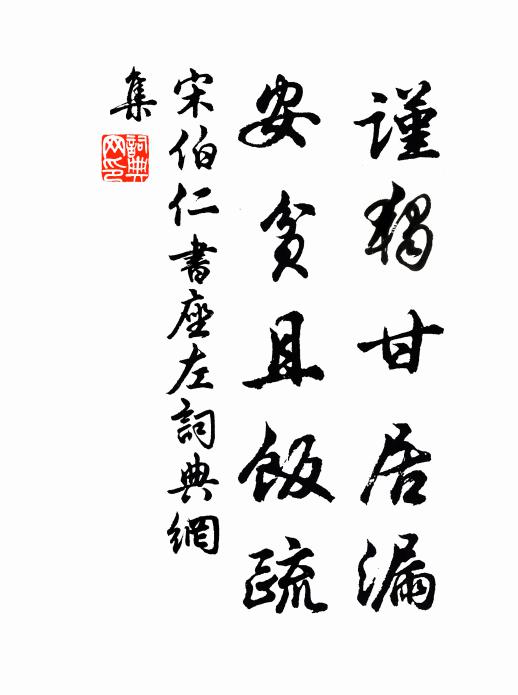 謹獨甘居漏
安貧且飯疏
宋伯仁書座左詞典網
集
詞典網印